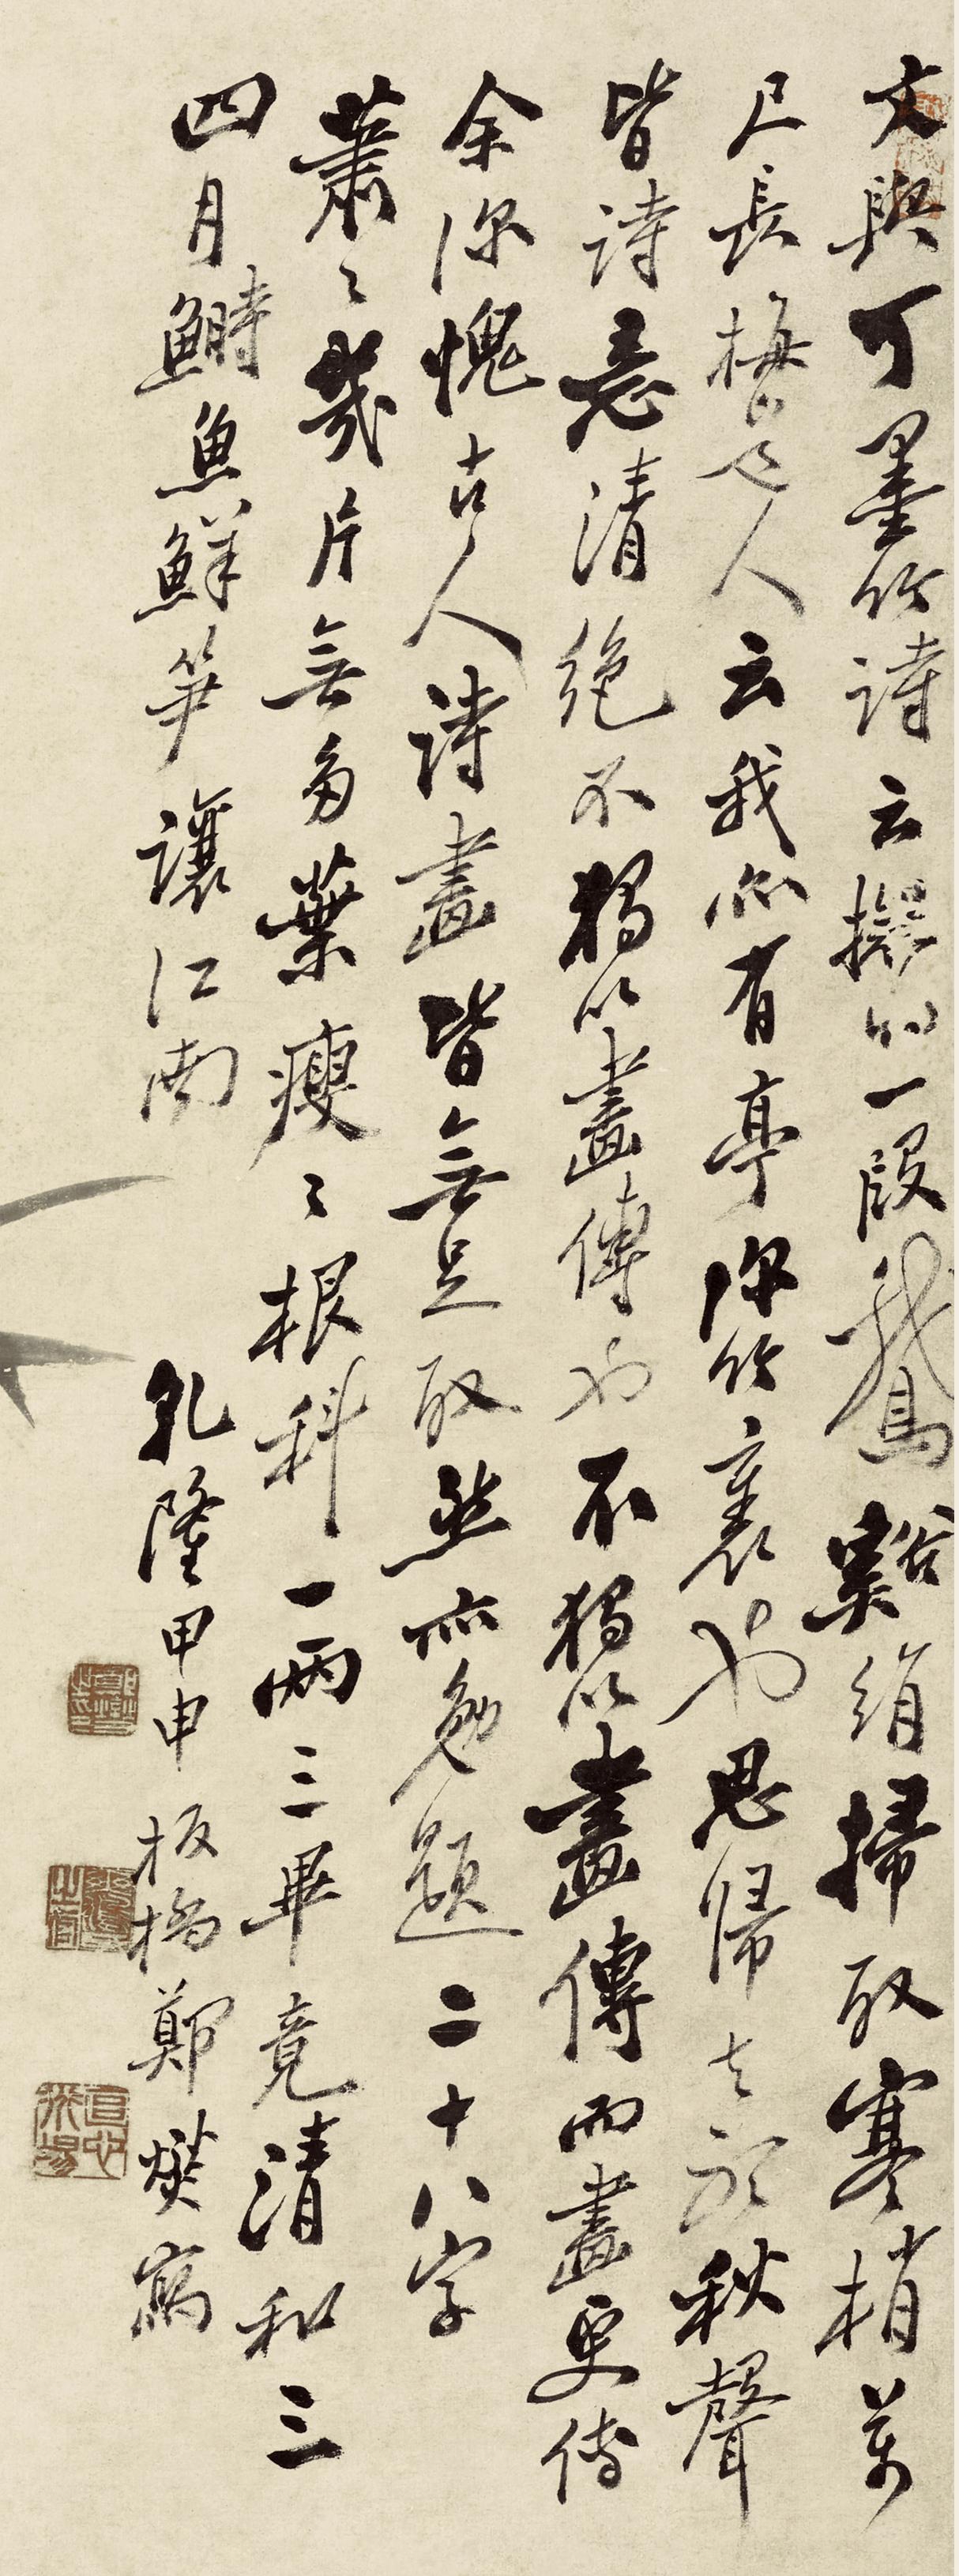 文與可墨竹詩云擬將一段鵞谿絹掃取寒梢萬
尺長梅道人云我亦有亭深竹裏也思歸去聽秋聲
皆詩意清絶不獨以畫傳也不獨以畫傳而畫更傳
余深愧古人詩畫皆無足取然亦勉題二十八字
蕭〻幾片無多葉瘦〻根科一兩三畢竟清和三
四月鰣魚鮮筍讓江南
乹隆甲申 板橋鄭燮寫